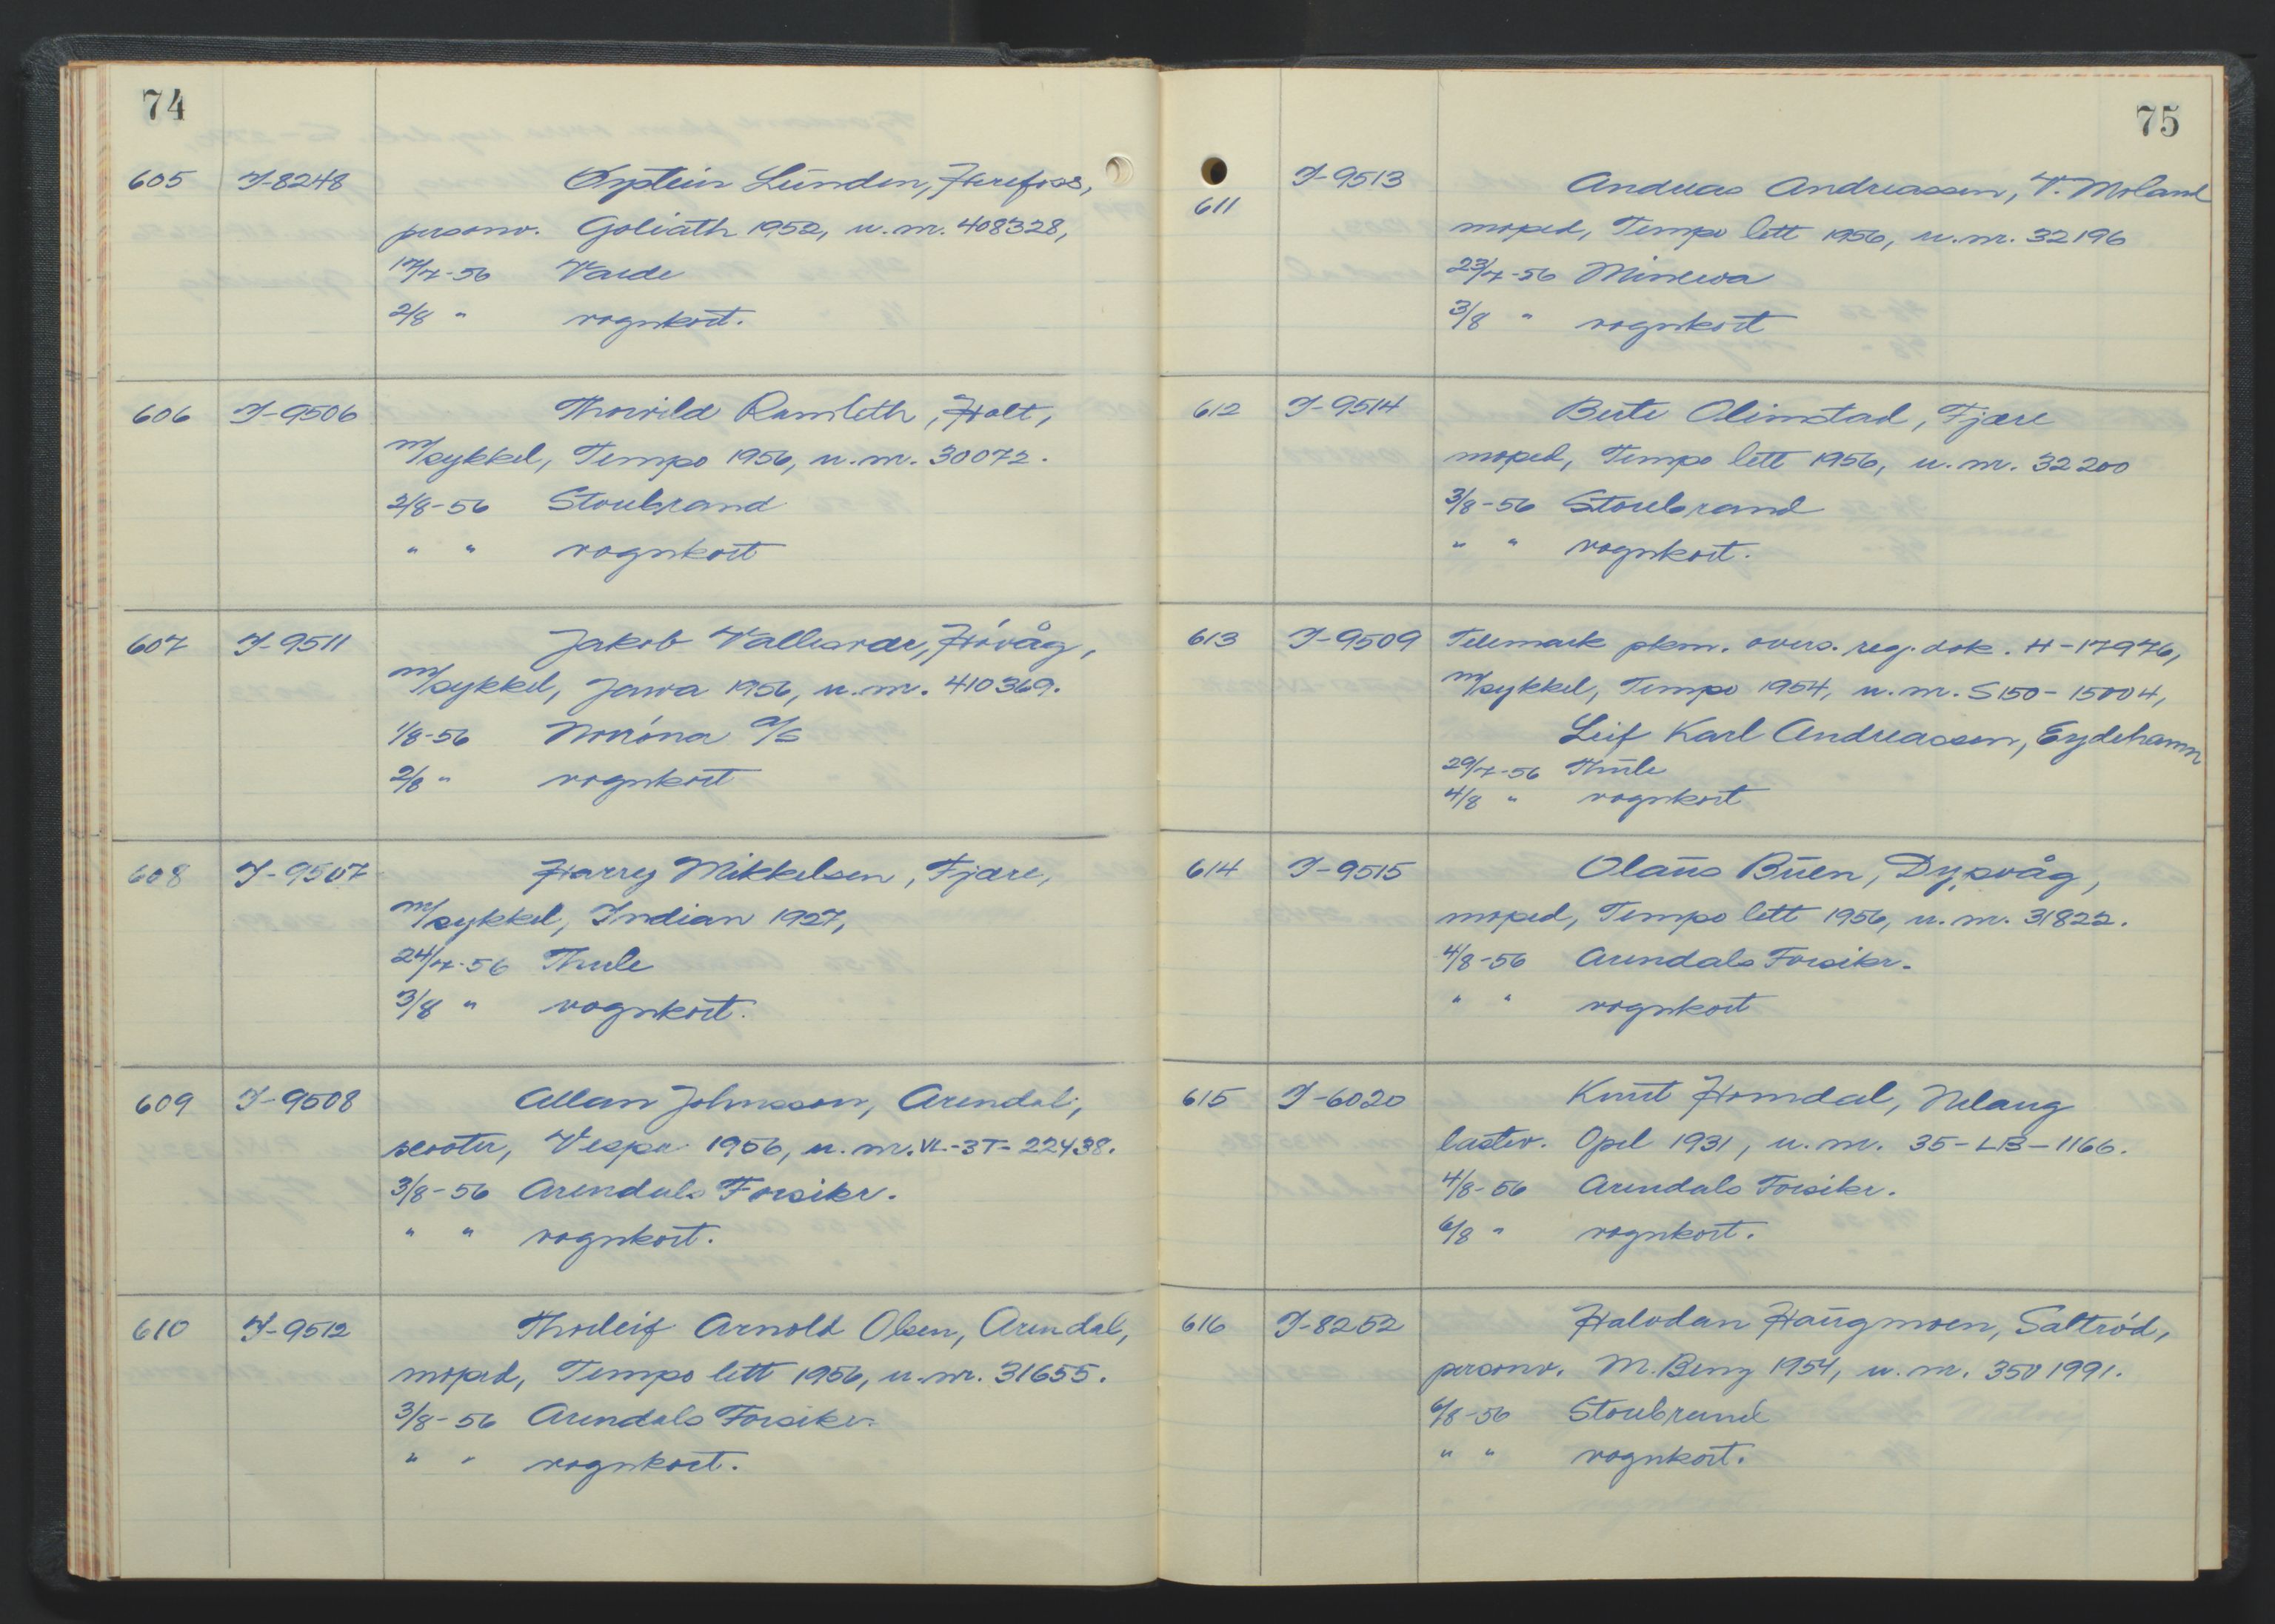 74
605 I-8248 Øystein Lunden, Herefoss,
personv. Goliath 1952, u.nr. 408328,
17/7-56 Varde
2/8 " vognkort.
606 I-9506 Thorvild Ramleth, Holt,
m/sykkel, Tempo 1956, u.nr. 30072.
2/8-56 Storebrand
" " vognkort
607 I-9511 Jakob Vallesvær, Høvåg,
m/sykkel, Jawa 1956, u.nr. 410369.
1/8-56 Norrøna A/S
2/8 " vognkort
608 I-9507 Harrey Mikkelsen, Fjære,
m/sykkel, Indian 1927,
24/7-56 Thule
3/8 " vognkort.
609 I-9508 Allan Johnsson, Arendal,
scooter, Vespa 1956, u.nr. VL-3T-22438.
3/8-56 Arendals Forsikr.
" " vognkort.
610 I-9512 Thorleif Arnold Olsen, Arendal,
moped, Tempo lett 1956, u.nr. 31655.
3/8-56 Arendals Forsikr.
" " vognkort.
75
611 I-9513 Andreas Andreassen, V. Moland
moped, Tempo lett 1956, u.nr. 32196
23/7-56 Minerva
3/8 " vognkort
612 I-9514 Berte Olimstad, Fjære
moped, Tempo lett 1956, u.nr. 32200
3/8-56 Storebrand
" " vognkort.
613 I-9509 Telemark pkm. overs. reg. dok. H-17976,
m/sykkel, Tempo 1954, u.nr. S150-15004,
Leif Karl Andreassen, Eydehamn
29/7-56 Thule
4/8 " vognkort
614 I-9515 Olaus Buen, Dypvåg,
moped, Tempo lett 1956, u.nr. 31822.
4/8-56 Arendals Forsikr.
" " vognkort
615 I-6020 Knut Homdal, Nelaug
lastev. Opel 1931, u.nr. 35-LB-1166.
4/8-56 Arendals Forsikr.
6/8 " vognkort.
616 I-8252 Halvdan Haugmoen, Saltrød,
personv. M.Benz 1954, u.nr. 3501991.
6/8-56 Storebrand
" " vognkort.